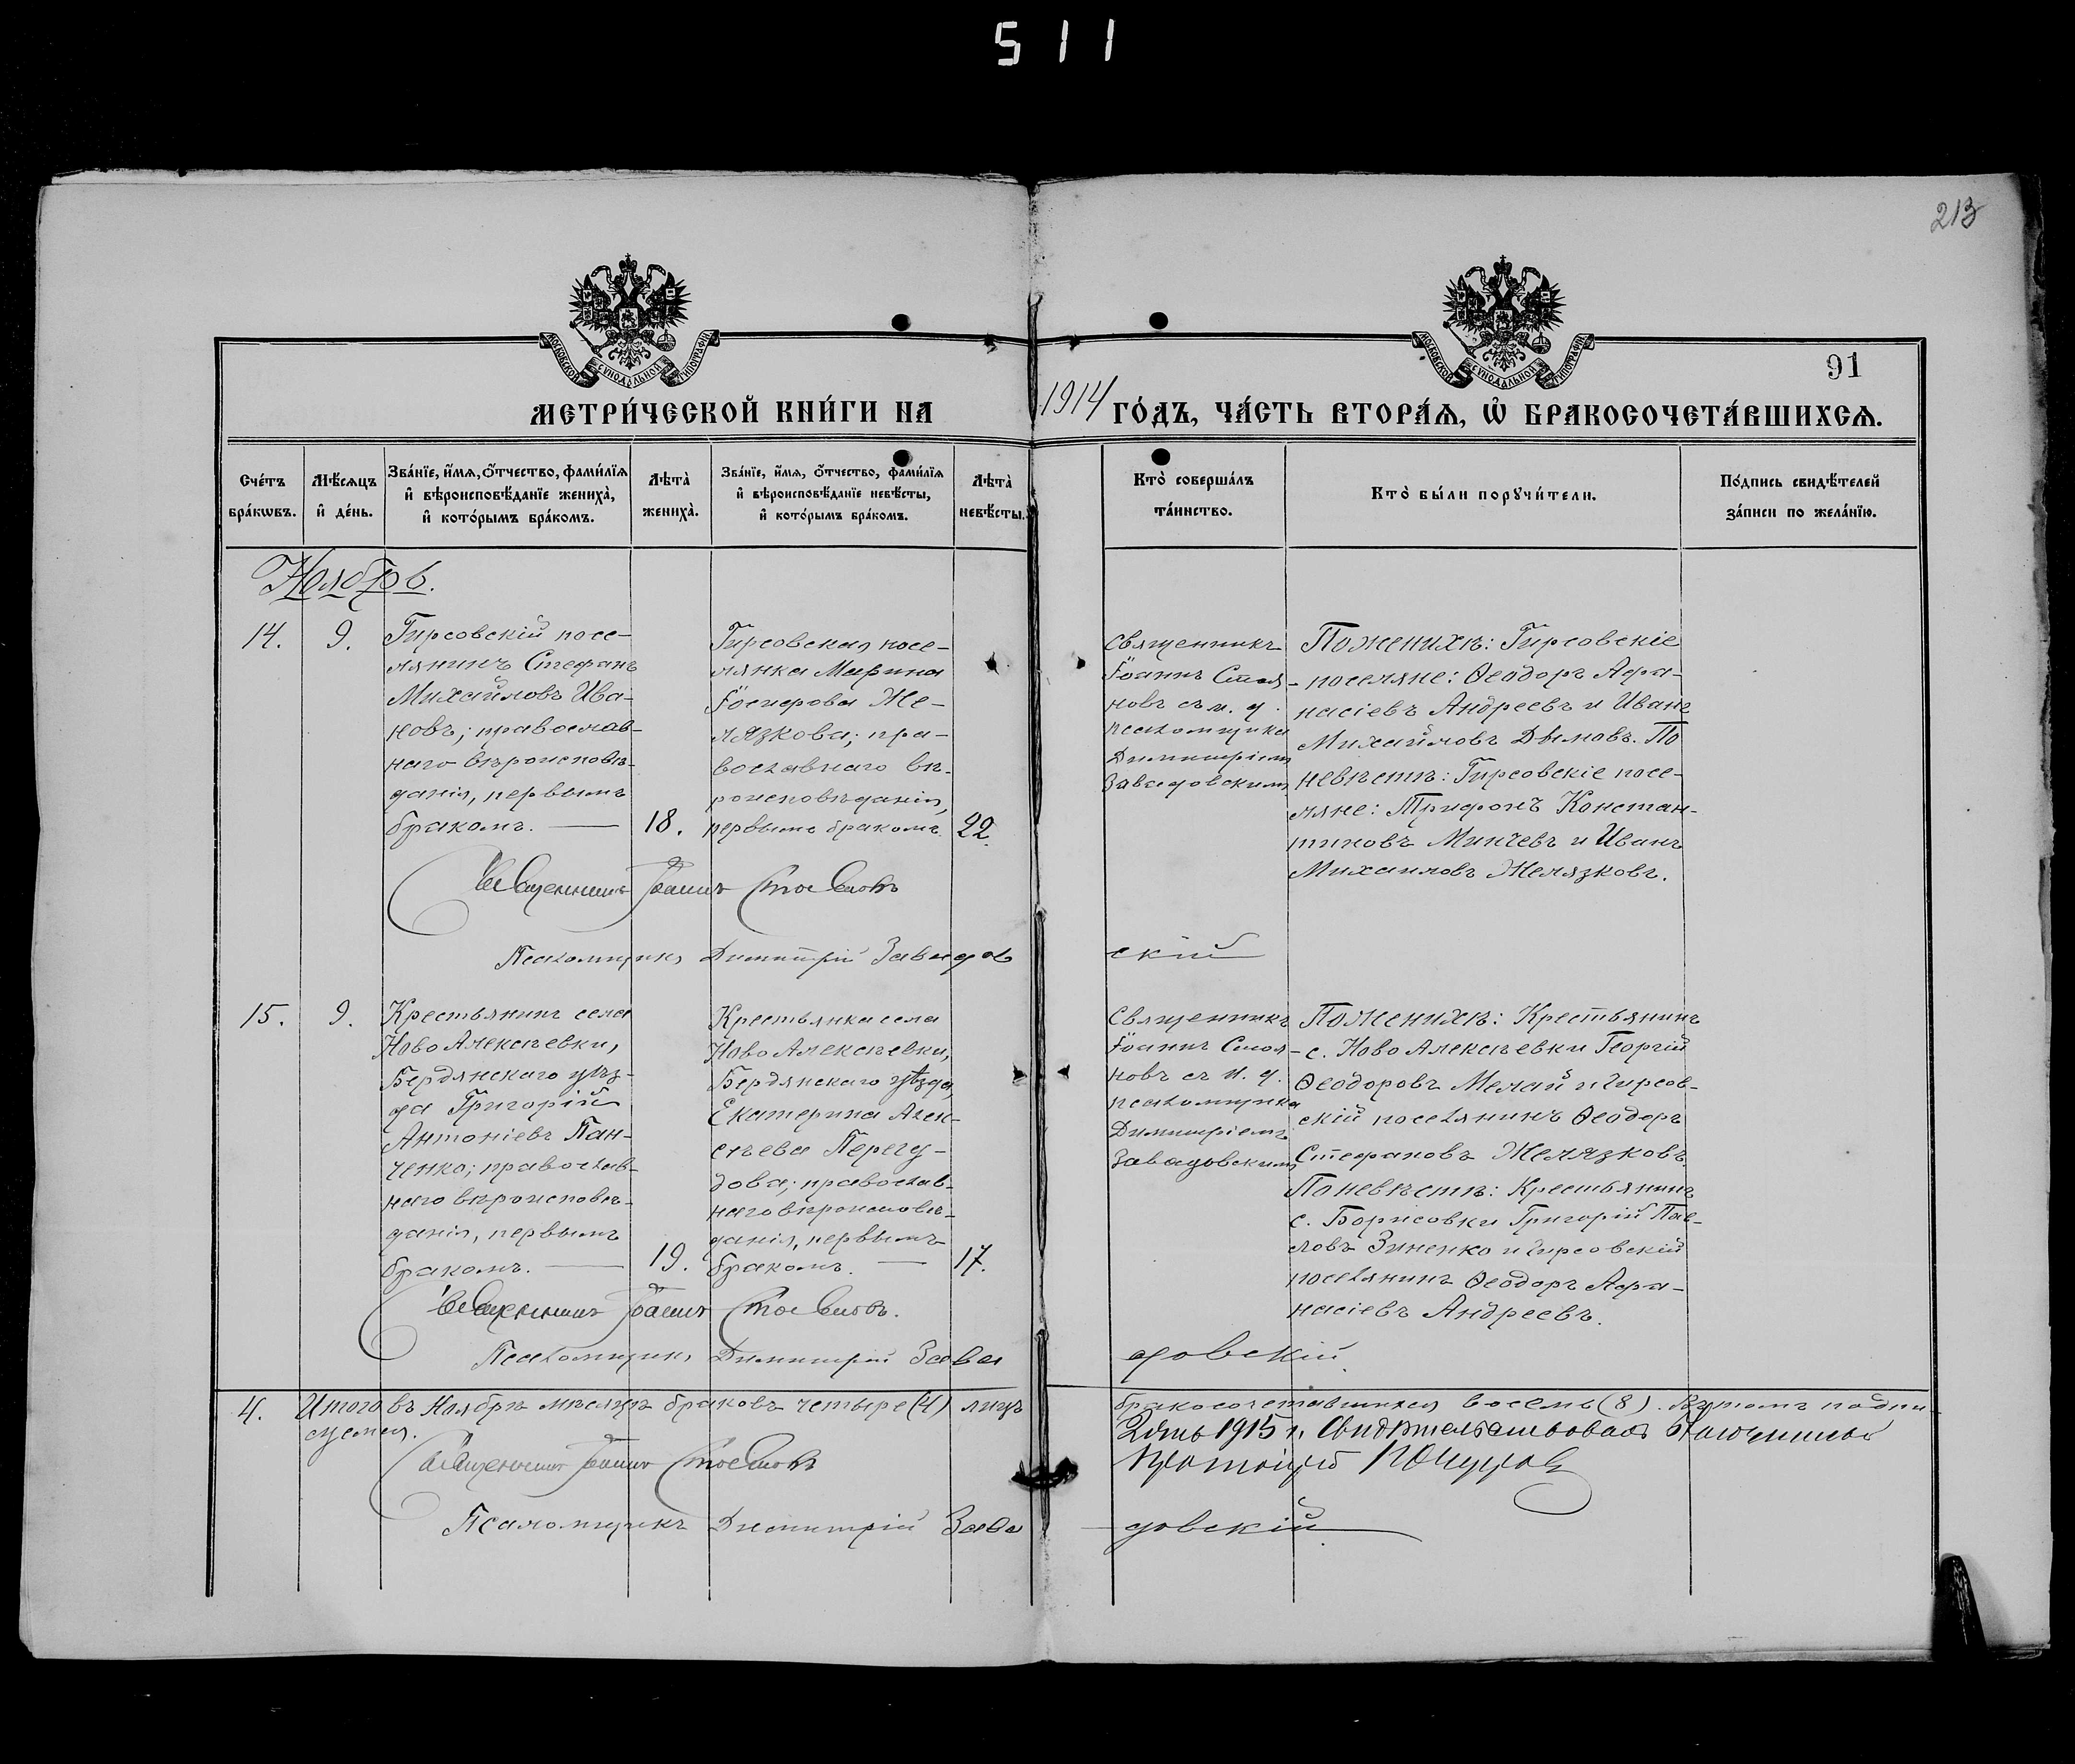 511
213
91
МОСКОВСКОЙ СУНОДАЛЬНОЙ ТИПОГРАФІИ
МОСКОВСКОЙ СУНОДАЛЬНОЙ ТИПОГРАФІИ
МЕТРИ́ЧЕСКОЙ КНИ́ГИ НА 1914 ГО́ДЪ, ЧА́СТЬ ВТОРА́Ѧ, Ѡ҆ БРАКОСОЧЕТА́ВШИХСѦ.
Сче́тъ
бра́кѡвъ.
Мѣ́сѧцъ
и҆ де́нь.
Зва́нїе, и҆́мѧ, о҆́тчество, фами́лїѧ
и҆ вѣроисповѣ́данїе жениха̀,
и҆ кото́рымъ бра́комъ.
Лѣта̀
жениха̀.
Зва́нїе, и҆́мѧ, о҆́тчество, фами́лїѧ
и҆ вѣроисповѣ́данїе невѣ́сты,
и҆ кото́рымъ бра́комъ.
Лѣта̀
невѣ́сты.
Кто̀ соверша́лъ
та́инство.
Кто̀ бы́ли порꙋчи́тели.
По́дпись свидѣ́телей
за́писи по жела́нїю.
Ноябрь.
14.
9.
Гирсовскій посе-
лянинъ Стефанъ
Михайловъ Ива-
новъ; православ-
наго вѣроисповѣ-
данія, первымъ
бракомъ.
18.
Гирсовская посе-
лянка Марина
Іосифова Же-
лязкова; пра-
вославнаго вѣ-
роисповѣданія,
первымъ бракомъ.
22.
Священникъ
Іоаннъ Стоя-
новъ съ и. д.
псаломщика
Димитріемъ
Завадовскимъ
По женихѣ: Гирсовскіе
поселяне: Ѳеодоръ Аѳа-
насіевъ Андреевъ и Иванъ
Михайловъ Дымовъ. По
невѣстѣ: Гирсовскіе посе-
ляне: Трифонъ Констан-
тиновъ Минчевъ и Иванъ
Михаиловъ Желязковъ.
Священникъ Іоаннъ Стояновъ
Псаломщикъ Димитрій Завадовскій
15.
9.
Крестьянинъ села
Ново Алексѣевки,
Бердянскаго уѣз-
да Григорій
Антоніевъ Пан-
ченко; православ-
наго вѣроисповѣ-
данія, первымъ
бракомъ.
19.
Крестьянка села
Ново Алексѣевки,
Бердянскаго уѣзда,
Екатерина Алек-
сѣева Перегу-
дова; православ-
наго вѣроисповѣ-
данія, первымъ
бракомъ.
17.
Священникъ
Іоаннъ Стоя-
новъ съ и. д.
псаломщика
Димитріемъ
Завадовскимъ
По женихѣ: Крестьянинъ
с. Ново Алексѣевки Георгій
Ѳеодоровъ Мелай и Гирсов-
скій поселянинъ Ѳеодоръ
Стефановъ Желязковъ.
По невѣстѣ: Крестьянинъ
с. Борисовки Григорій Пав-
ловъ Зиненко и Гирсовскій
поселянинъ Ѳеодоръ Аѳа-
насіевъ Андреевъ.
Священникъ Іоаннъ Стояновъ.
Псаломщикъ Димитрій Завадовскій.
4. Итого въ Ноябрѣ мѣсяцѣ браковъ четыре (4) лицъ бракосочетавшихся восемь (8). Въ томъ подпи-
суемся.
1915 г. Свидѣтельствовалъ Благочинный
Священникъ Іоаннъ Стояновъ
Псаломщикъ Димитрій Завадовскій.